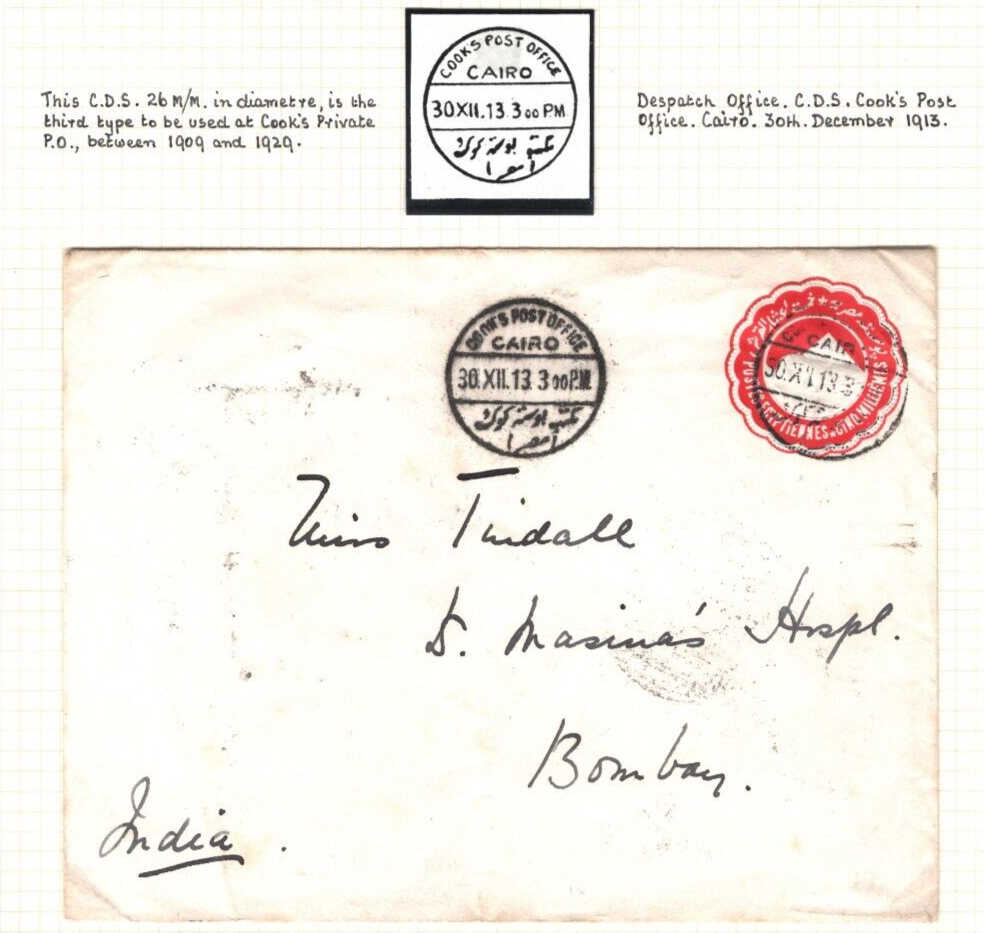 This C.D.S. 26 M/M. in diametre, is the
third type to be used at Cook's Private
P.O., between 1909 and 1929.
COOK'S POST OFFICE
CAIRO
30 XII. 13. 3 00 PM
مكتب بوستة كوك
Despatch Office. C.D.S. Cook's Post
Office. Cairo. 30th. December 1913.
COOK'S POST OFFICE
CAIRO
30. XII. 13 3 00 P.M.
مكتب بوستة كوك
POSTES EGYPTIENNES ★ CINQ MILLIEMES
CAIR
30. XII 13 3
Miss Tindall
D. Masina's Hospl.
Bombay.
India.